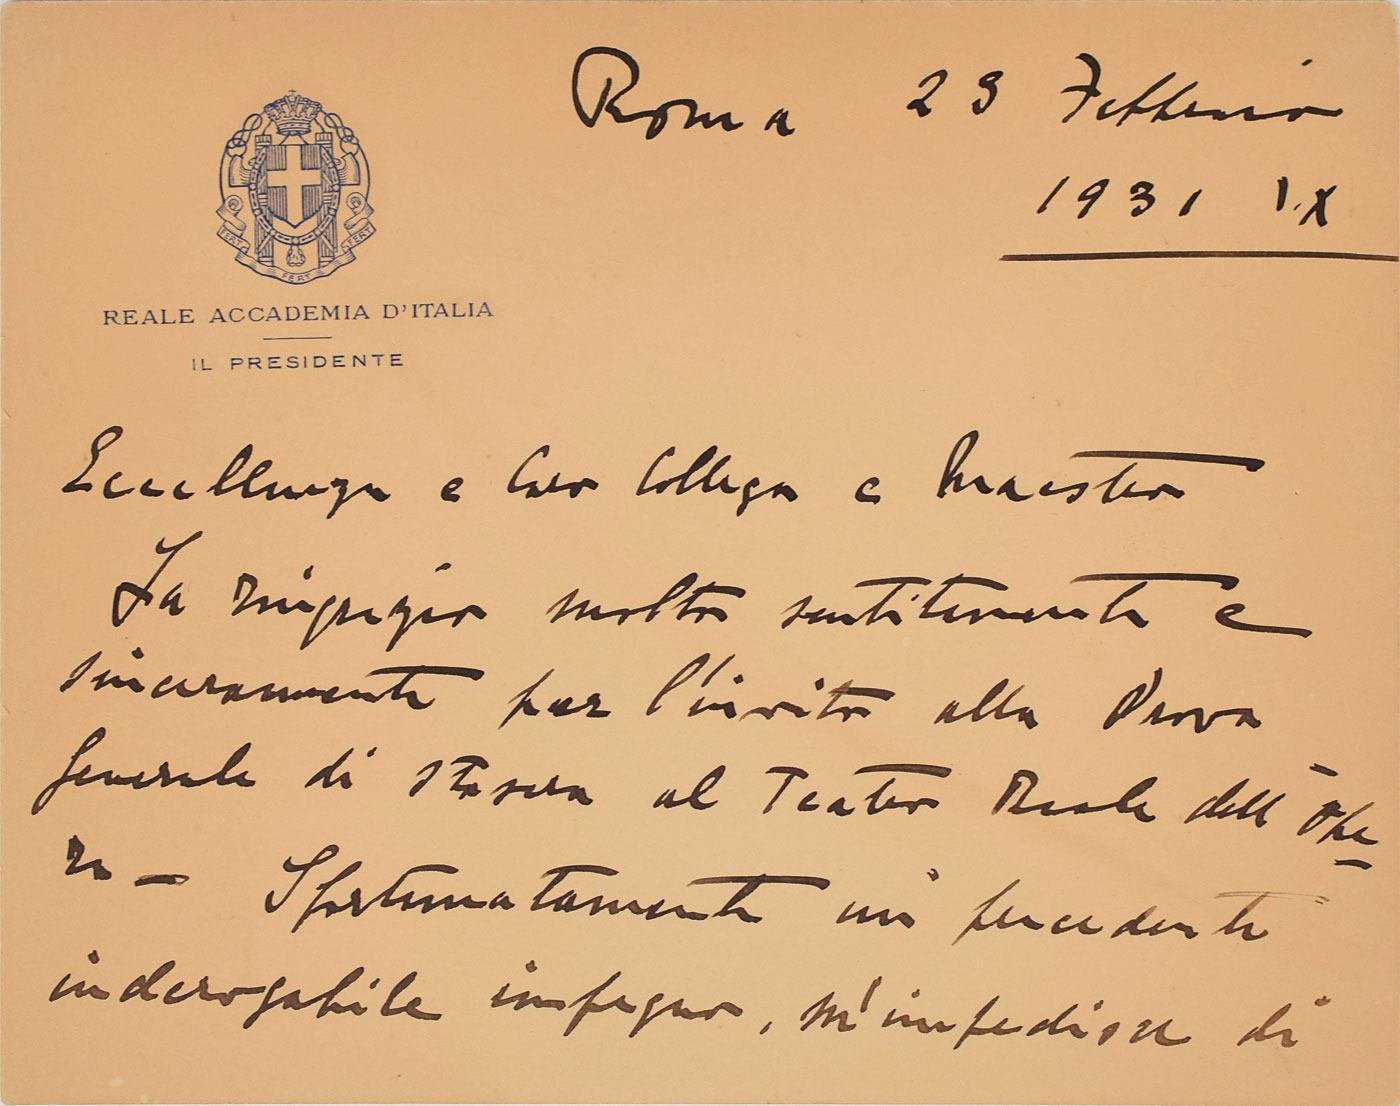 Roma 23 Febbraio
1931 IX
FERT FERT FERT
REALE ACCADEMIA D'ITALIA
IL PRESIDENTE
Eccellenza e Caro Collega e Maestro
La ringrazio molto sentitamente e
sinceramente per l'invito alla Prova
Generale di stasera al Teatro Reale dell'Ope=
ra — Sfortunatamente un precedente
inderogabile impegno, m'impedisce di